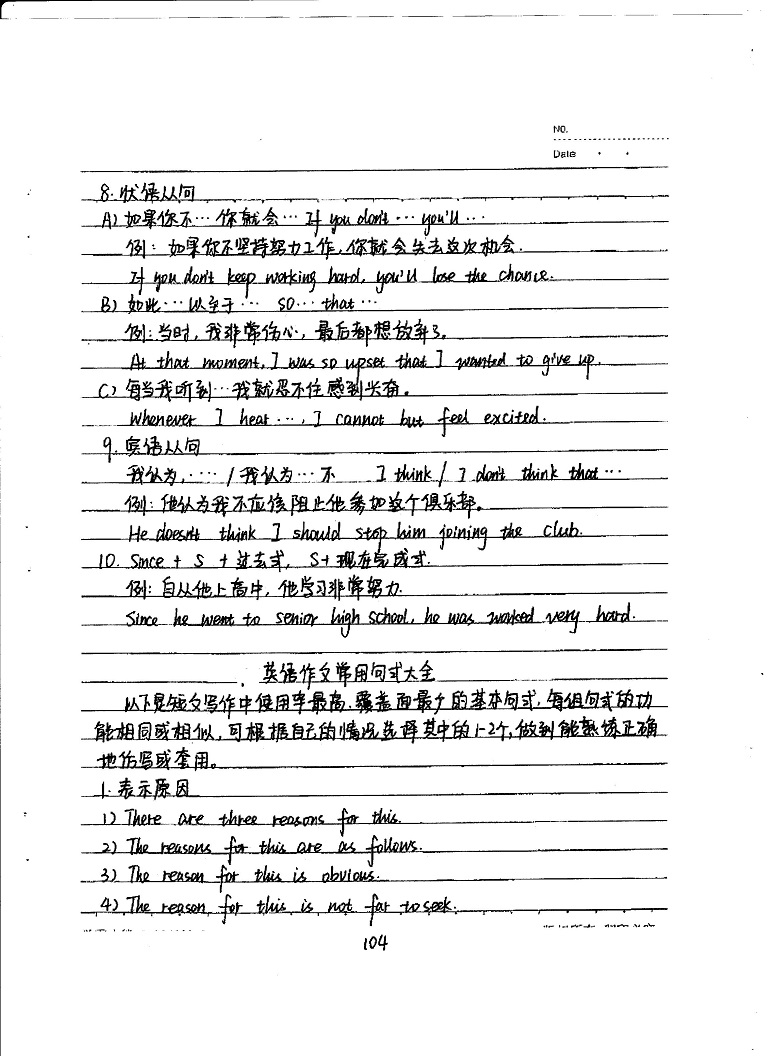 NO.
Date
8. 状语从句
A) 如果你不… 你就会… If you don't … you'll …
例: 如果你不坚持努力工作, 你就会失去这次机会.
If you don't keep working hard, you'll lose the chance.
B) 如此…以至于… so…that…
例: 当时, 我非常伤心, 最后都想放弃了。
At that moment, I was so upset that I wanted to give up.
C) 每当我听到…我就忍不住感到兴奋。
Whenever I hear …, I cannot but feel excited.
9. 宾语从句
我认为, … / 我认为…不 I think / I don't think that …
例: 他认为我不应该阻止他参加这个俱乐部。
He doesn't think I should stop him joining the club.
10. Since + S + 过去式, S + 现在完成式.
例: 自从他上高中, 他学习非常努力.
Since he went to senior high school, he was worked very hard.
英语作文常用句式大全
以下是短文写作中使用率最高、覆盖面最广的基本句式, 每组句式的功
能相同或相似, 可根据自己的情况选择其中的1-2个, 做到能熟练正确
地仿写或套用。
1. 表示原因
1) There are three reasons for this.
2) The reasons for this are as follows.
3) The reason for this is obvious.
4) The reason for this is not far to seek.
104